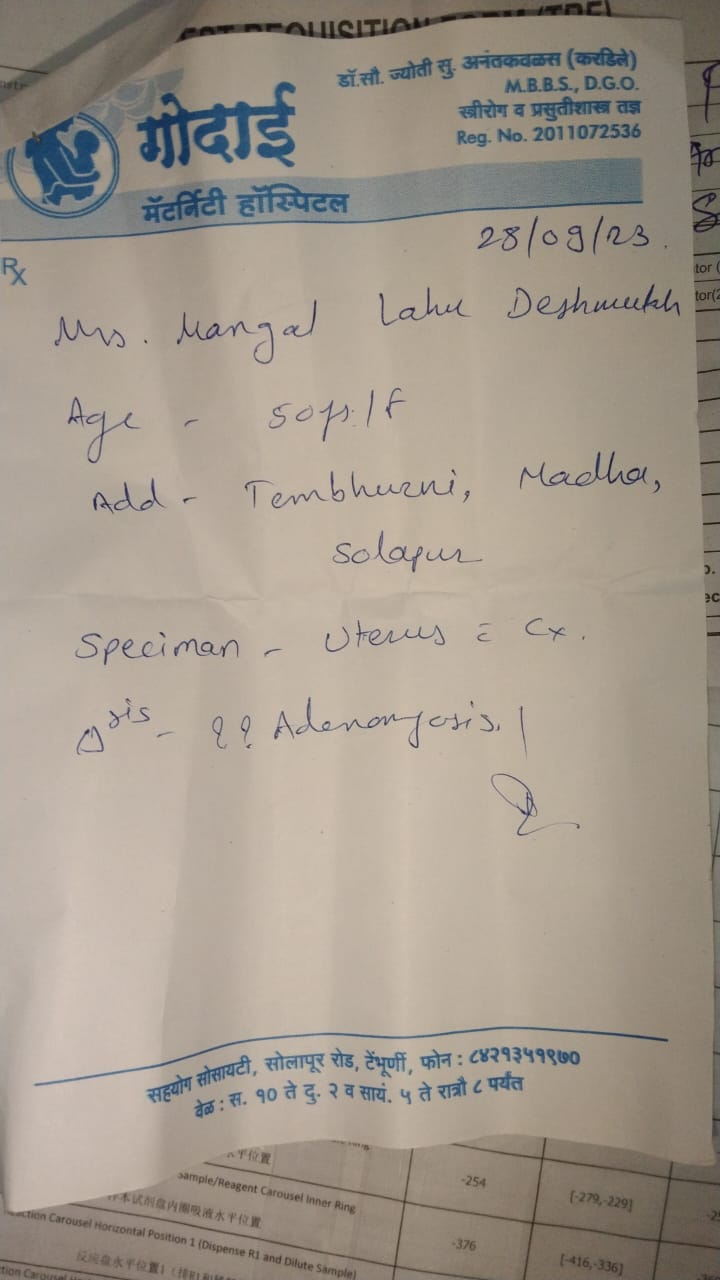 EST REQUISITION FORM (TRF)
डॉ.सौ. ज्योती सु. अनंतकवळस (करडिले)
M.B.B.S., D.G.O.
स्त्रीरोग व प्रसुतीशास्त्र तज्ञ
Reg. No. 2011072536
गोदाई
मॅटर्निटी हॉस्पिटल
28/09/23.
Rx
Mrs. Mangal Lahu Deshmukh
Age - 50yrs./F
Add - Tembhurni, Madha,
Solapur
Speciman - Uterus c̄ Cx.
?? Adenomyosis.
सहयोग सोसायटी, सोलापूर रोड, टेंभूर्णी, फोन : ८४२१३४११७०
वेळ : स. १० ते दु. २ व सायं. ५ ते रात्रौ ८ पर्यंत
水平位置
Sample/Reagent Carousel Inner Ring
-254
[-279,-229]
样本试剂盘内圈吸液水平位置
Carousel Horizontal Position 1 (Dispense R1 and Dilute Sample)
-376
[-416,-336]
反应盘水平位置1